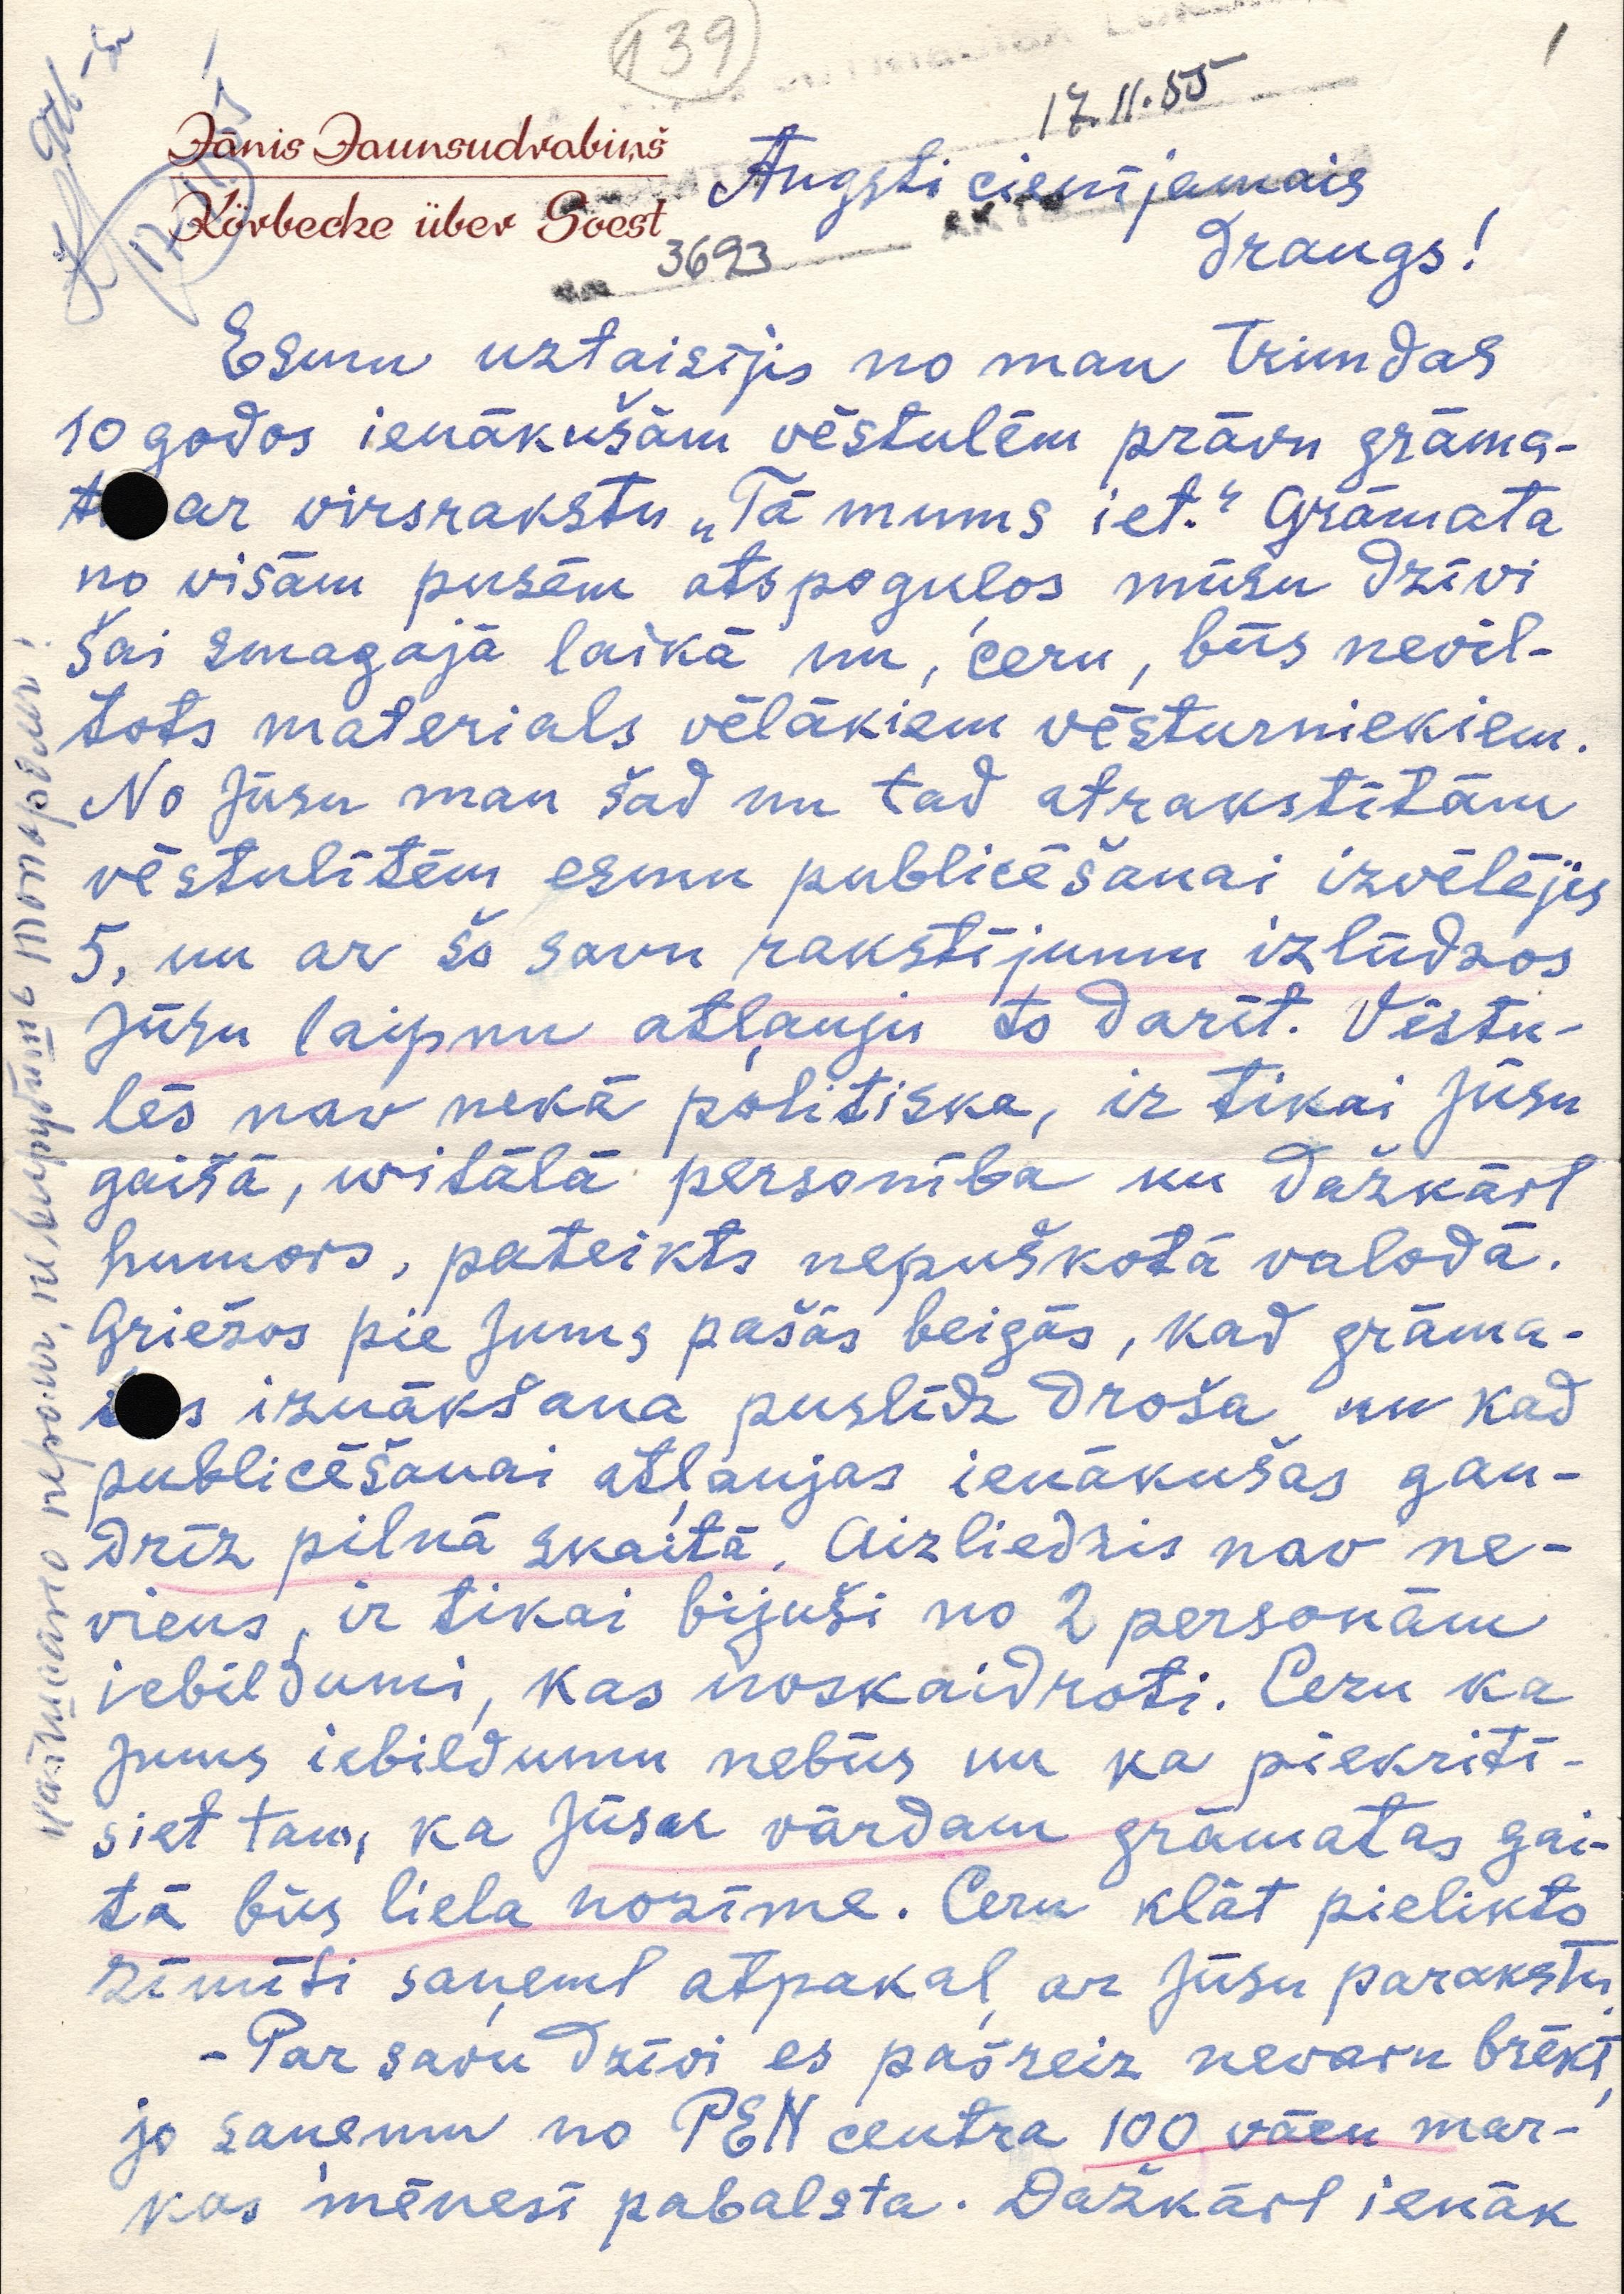 139
1
17.11.55
Jānis Jaunsudrabiņš
Körbecke über Soest
Augsti cienījamais
Draugs!
3693
Esmu uztaisījis no man trimdas
10 godos ienākušām vēstulēm prāvu grāma-
ar virsrakstu „Tā mums iet." Grāmata
no visām pusēm atspoguļos mūsu dzīvi
šai smagajā laikā un, ceru, būs nevil-
tots materials vēlākiem vēsturniekiem.
No Jūsu man šad un tad atrakstītām
vēstulītēm esmu publicēšanai izvēlējies
5, un ar šo savu rakstījumu izlūdzos
Jūsu laipnu atļauju to darīt. Vēstu-
lēs nav nekā politiska, ir tikai Jūsu
gaišā, vitālā personība un dažkārt
humors, pateikts nepuškotā valodā.
Griežos pie Jums pašās beigās, kad grāma-
s iznākšana puslīdz droša un kad
publicēšanai atļaujas ienākušas gan-
drīz pilnā skaitā. Aizliedzis nav ne-
viens, ir tikai bijuši no 2 personām
iebildumi, kas noskaidroti. Ceru ka
Jums iebildumu nebūs un ka piekritī-
siet tam, ka Jūsu vārdam grāmatas gai-
tā būs liela nozīme. Ceru klāt pielikto
zīmīti saņemt atpakaļ ar Jūsu parakstu.
- Par savu dzīvi es pašreiz nevaru brēkt,
jo saņemu no PEN centra 100 vācu mar-
kas mēnesī pabalsta. Dažkārt ienāk